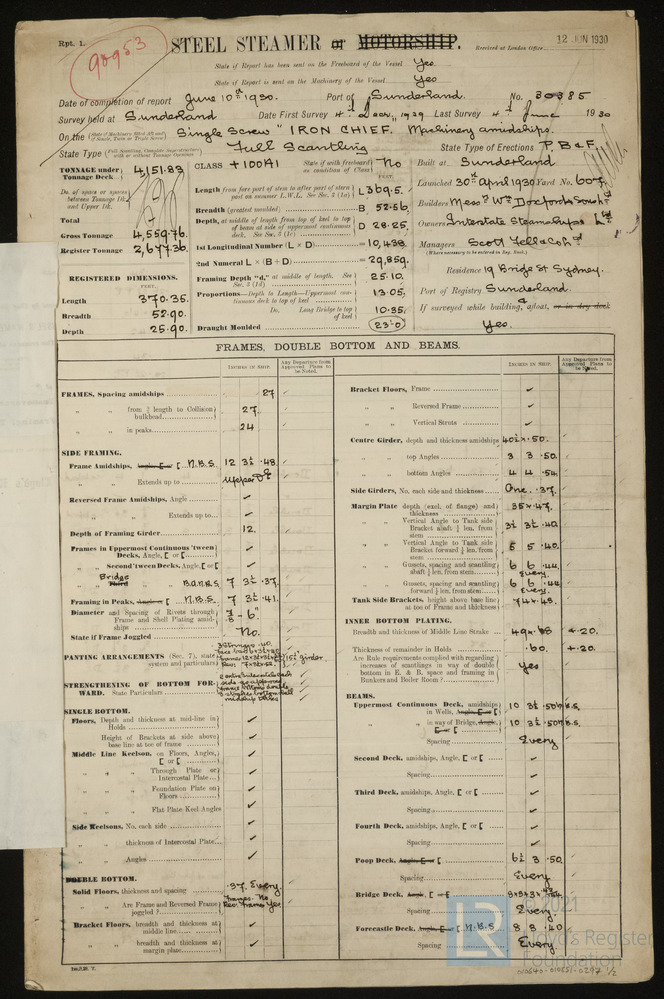 Rpt. 1.
90953
STEEL STEAMER or MOTORSHIP.
Received at London Office
12 JUN 1930
State if Report has been sent on the Freeboard of the Vessel Yes
State if Report is sent on the Machinery of the Vessel Yes
Date of completion of report June 10th 1930. Port of Sunderland. No. 30385
Survey held at Sunderland Date First Survey 4th Decr., 1929 Last Survey 4th June 1930
On the (State if Machinery fitted Aft and if Single, Twin or Triple Screw) Single Screw "IRON CHIEF. Machinery amidships.
State Type Full Scantling State Type of Erections P, B & F.
TONNAGE under Tonnage Deck 4,151.83
Do. of space or spaces between Tonnage Dk. and Upper Dk.
Total
Gross Tonnage 4,559.76.
Register Tonnage 2,677.36.
REGISTERED DIMENSIONS.
FEET.
Length 370.35.
Breadth 52.90.
Depth 25.90.
CLASS +100A1 State if with freeboard as condition of Class No
FEET.
Length from fore part of stem to after part of stern post on summer L.W.L. See Sec. 3 (1a) L 369.5.
Breadth (greatest moulded) B 52.56
Depth, at middle of length from top of keel to top of beam at side of uppermost continuous deck. See Sec. 3 (1c) D 28.25.
1st Longitudinal Number (L × D) = 10,438.
2nd Numeral L × (B + D) = 29,859.
Framing Depth "d," at middle of length. See Sec. 3 (1d) 25.10.
Proportions—Depth to Length—Uppermost continuous deck to top of keel 13.05.
Do. Long Bridge to top of keel 10.35.
Draught Moulded 23'0
Built at Sunderland
Launched 30th April 1930 Yard No. 607.
Builders Messrs Wm Doxford & Sons Ltd
Owners Interstate Steamships Ltd
Managers Scott Fell & Co Ltd
(Where necessary to be entered in Reg. Book.)
Residence 19 Bridge St Sydney.
Port of Registry Sunderland.
If surveyed while building, afloat, or in dry dock
Yes.
FRAMES, DOUBLE BOTTOM AND BEAMS.
INCHES IN SHIP.
Any Departure from Approved Plans to be Noted.
FRAMES, Spacing amidships 27
" " from ⅗ length to Collision bulkhead 27.
" " in peaks 24
SIDE FRAMING.
Frame Amidships, Angle, [ or [ N.B.S. 12 3½ .48
" " Extends up to Upper Dk
Reversed Frame Amidships, Angle ✓
" " Extends up to ✓
Depth of Framing Girder 12.
Frames in Uppermost Continuous 'tween Decks, Angle, [ or [ ✓
" Second 'tween Decks, Angle, [ or [ ✓
" Third Bridge " " B.A.N.B.S. 7 3½ .37
Framing in Peaks, Angle or [ N.B.S. 7 3½ .41.
Diameter and Spacing of Rivets through Frame and Shell Plating amidships ⅞ - 6"
State if Frame Joggled No.
PANTING ARRANGEMENTS (Sec. 7), state system and particulars
STRENGTHENING OF BOTTOM FORWARD. State Particulars
SINGLE BOTTOM.
Floors, Depth and thickness at mid-line in Holds ✓
Height of Brackets at side above base line at toe of frame ✓
Middle Line Keelson, on Floors, Angles, [ or [ ✓
" " Through Plate or Intercostal Plate ✓
" " Foundation Plate on Floors ✓
" " Flat Plate Keel Angles ✓
Side Keelsons, No. each side ✓
" " thickness of Intercostal Plate ✓
" " Angles ✓
DOUBLE BOTTOM.
Solid Floors, thickness and spacing .37. Every
" " Are Frame and Reversed Frame joggled? Frames - No Rev. Frames Yes
Bracket Floors, breadth and thickness at middle line ✓
" " breadth and thickness at margin plate ✓
INCHES IN SHIP.
Any Departure from Approved Plans to be Noted.
Bracket Floors, Frame ✓
" " Reversed Frame ✓
" " Vertical Struts ✓
Centre Girder, depth and thickness amidships 40½ × .50.
" " top Angles 3 3 .50.
" " bottom Angles 4 4 .54.
Side Girders, No. each side and thickness One. .37.
Margin Plate depth (excl. of flange) and thickness 35 × .47.
" " Vertical Angle to Tank side Bracket abaft ¼ len. from stem 3½ 3½ .40.
" " Vertical Angle to Tank side Bracket forward ¼ len. from stem 5 5 .40.
" " Gussets, spacing and scantling abaft ¼ len. from stem 6 6 .44. Every
" " Gussets, spacing and scantling forward ¼ len. from stem 6 6 .44. Every.
Tank Side Brackets, height above base line at toe of Frame and thickness 74 × .48.
INNER BOTTOM PLATING.
Breadth and thickness of Middle Line Strake 49 × .58 +.20.
Thickness of remainder in Holds .60. +.20.
Are Rule requirements complied with regarding increases of scantlings in way of double bottom in E. & B. space and framing in Bunkers and Boiler Room? Yes
BEAMS.
Uppermost Continuous Deck, amidships in Wells, Angle, [ or [ 10 3½ .50 N.B.S.
" " in way of Bridge, Angle, [ or [ 10 3½ .50 N.B.S.
Spacing Every
Second Deck, amidships, Angle, [ or [ ✓
Spacing ✓
Third Deck, amidships, Angle, [ or [ ✓
Spacing ✓
Fourth Deck, amidships, Angle, [ or [ ✓
Spacing ✓
Poop Deck, Angle, [ or [ 6½ 3 .50.
Spacing Every
Bridge Deck, Angle, [ or [
Spacing Every.
Forecastle Deck, Angle, [ or [ N.B.S 8 3 .40
Spacing Every
© 2021
LR
Lloyd's Register
Foundation
010640-010651-0297 1/2